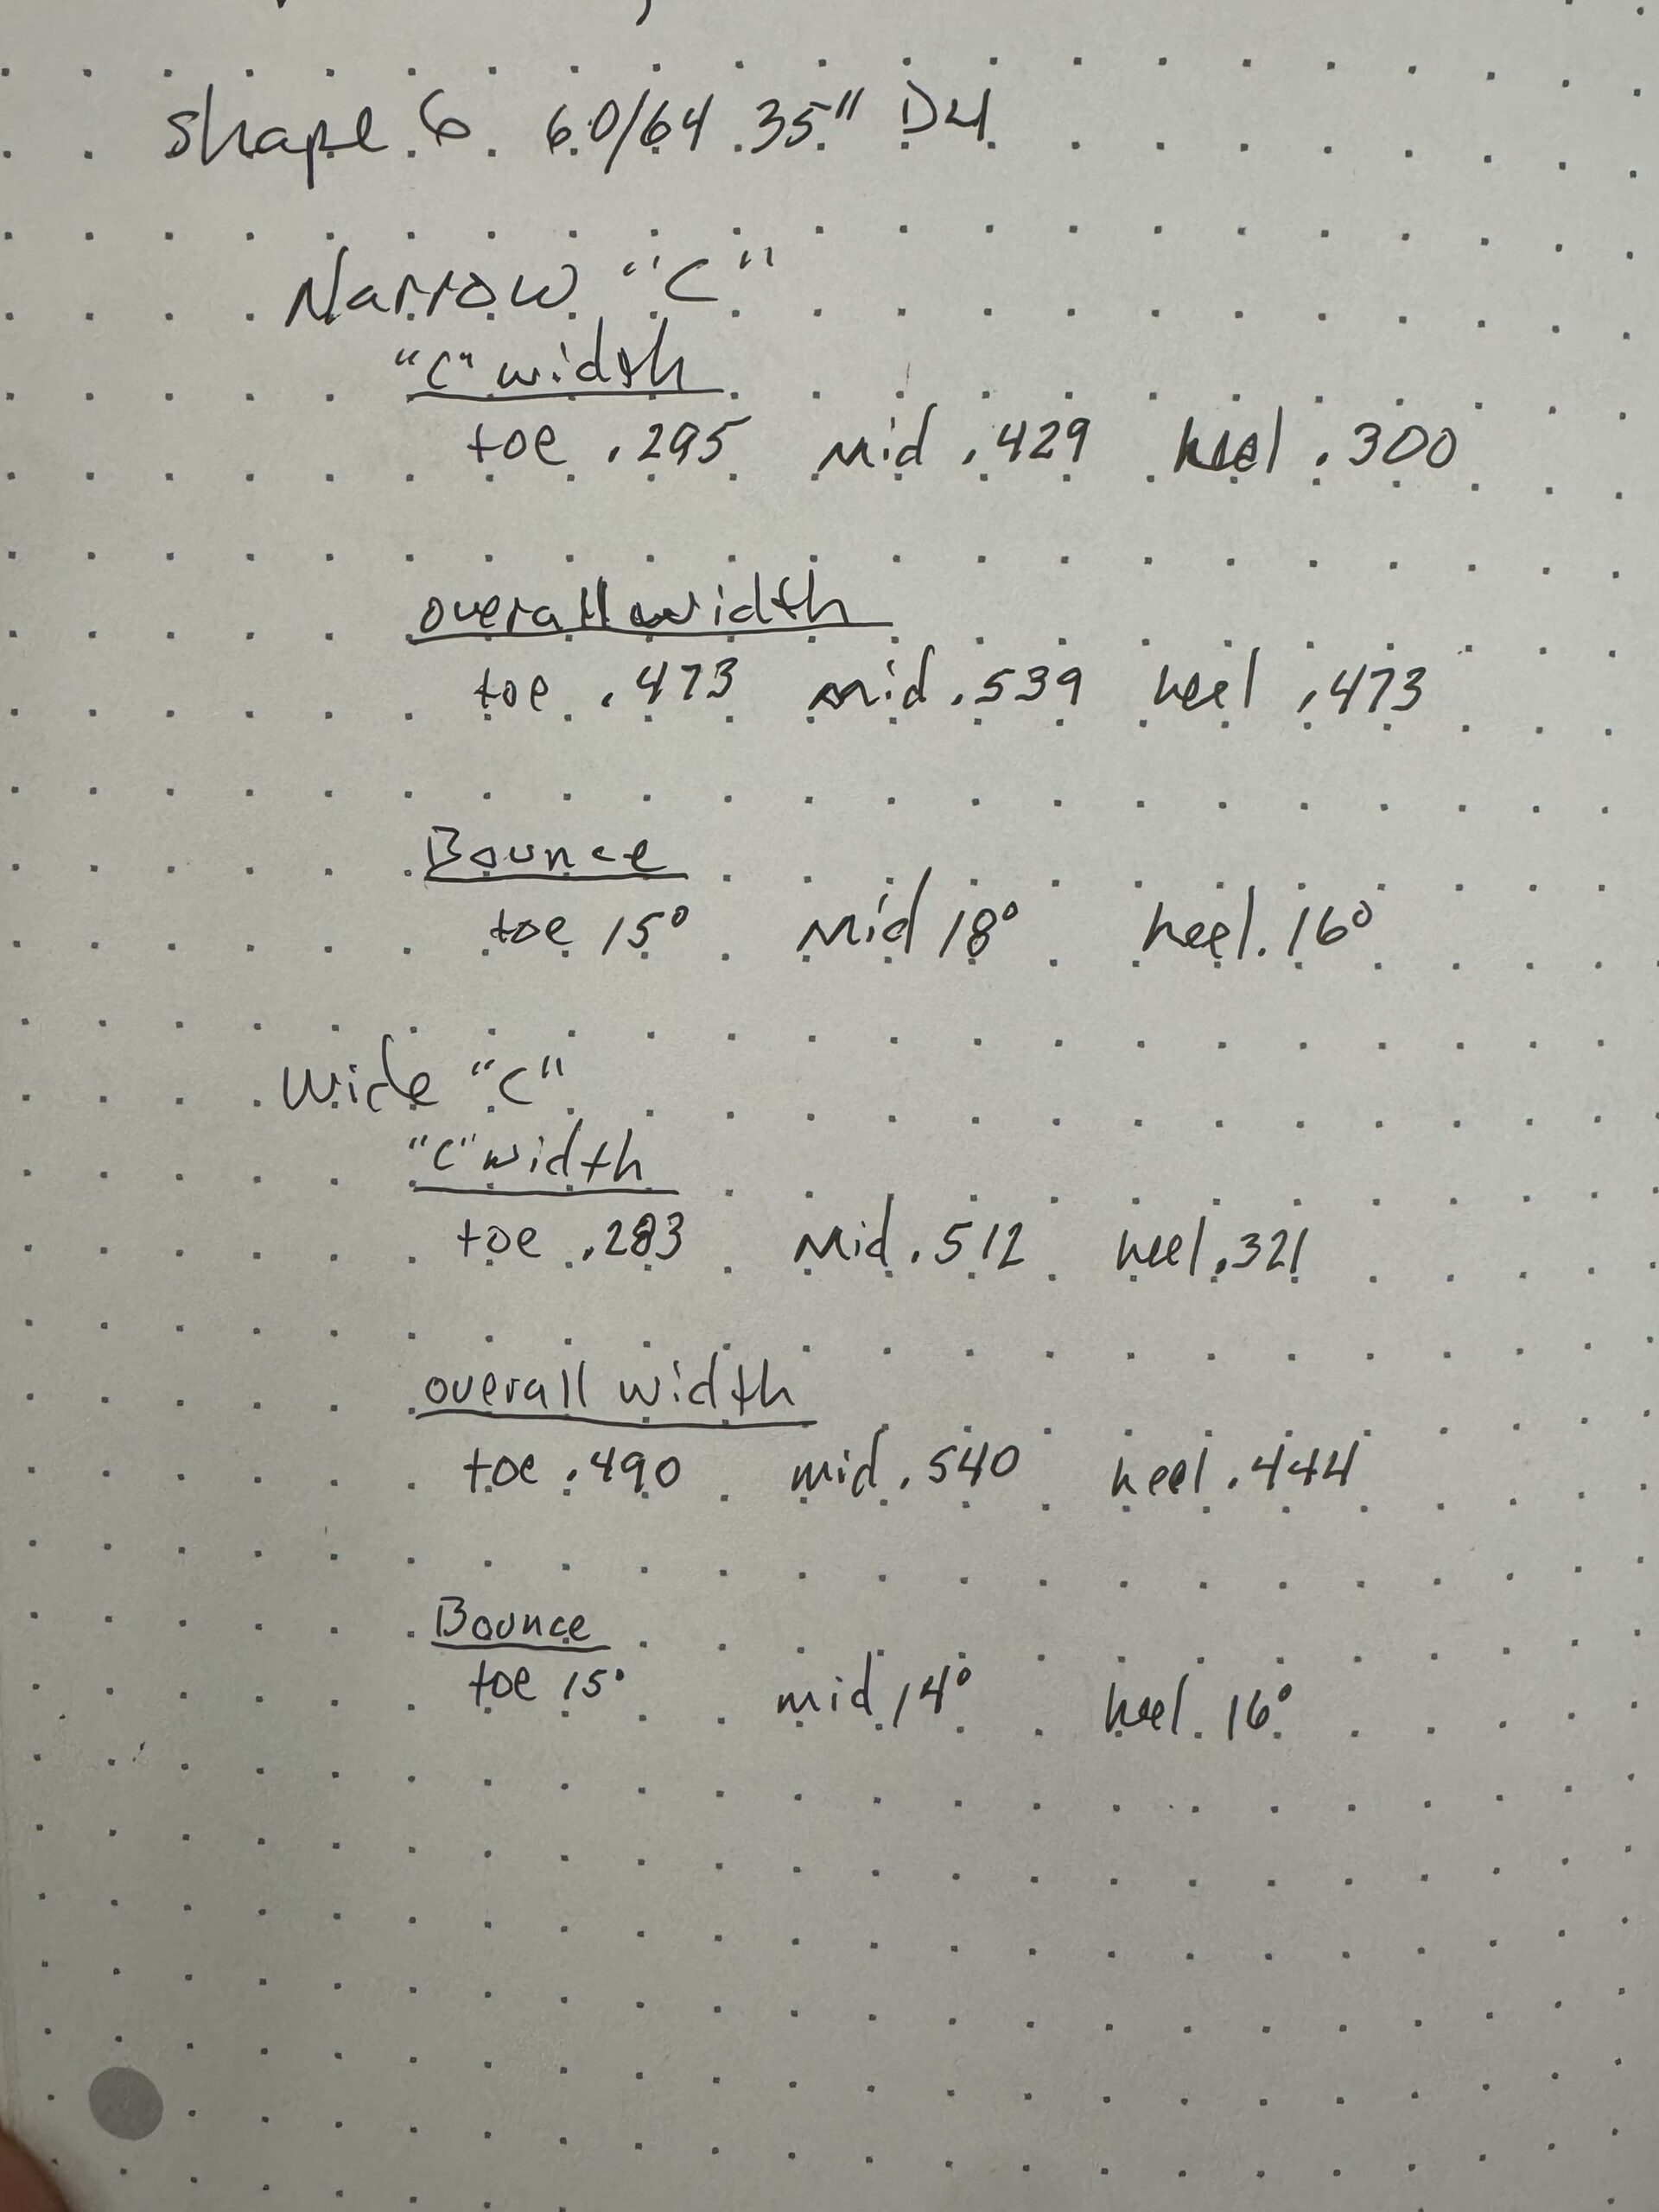 Shape 6 60/64 .35" D4
Narrow "C"
"C" width
toe .295 mid .429 heel .300
overall width
toe .473 mid .539 heel .473
Bounce
toe 15° mid 18° heel 16°
wide "C"
"C" width
toe .283 mid .512 heel .321
overall width
toe .490 mid .540 heel .444
Bounce
toe 15° mid 14° heel 16°